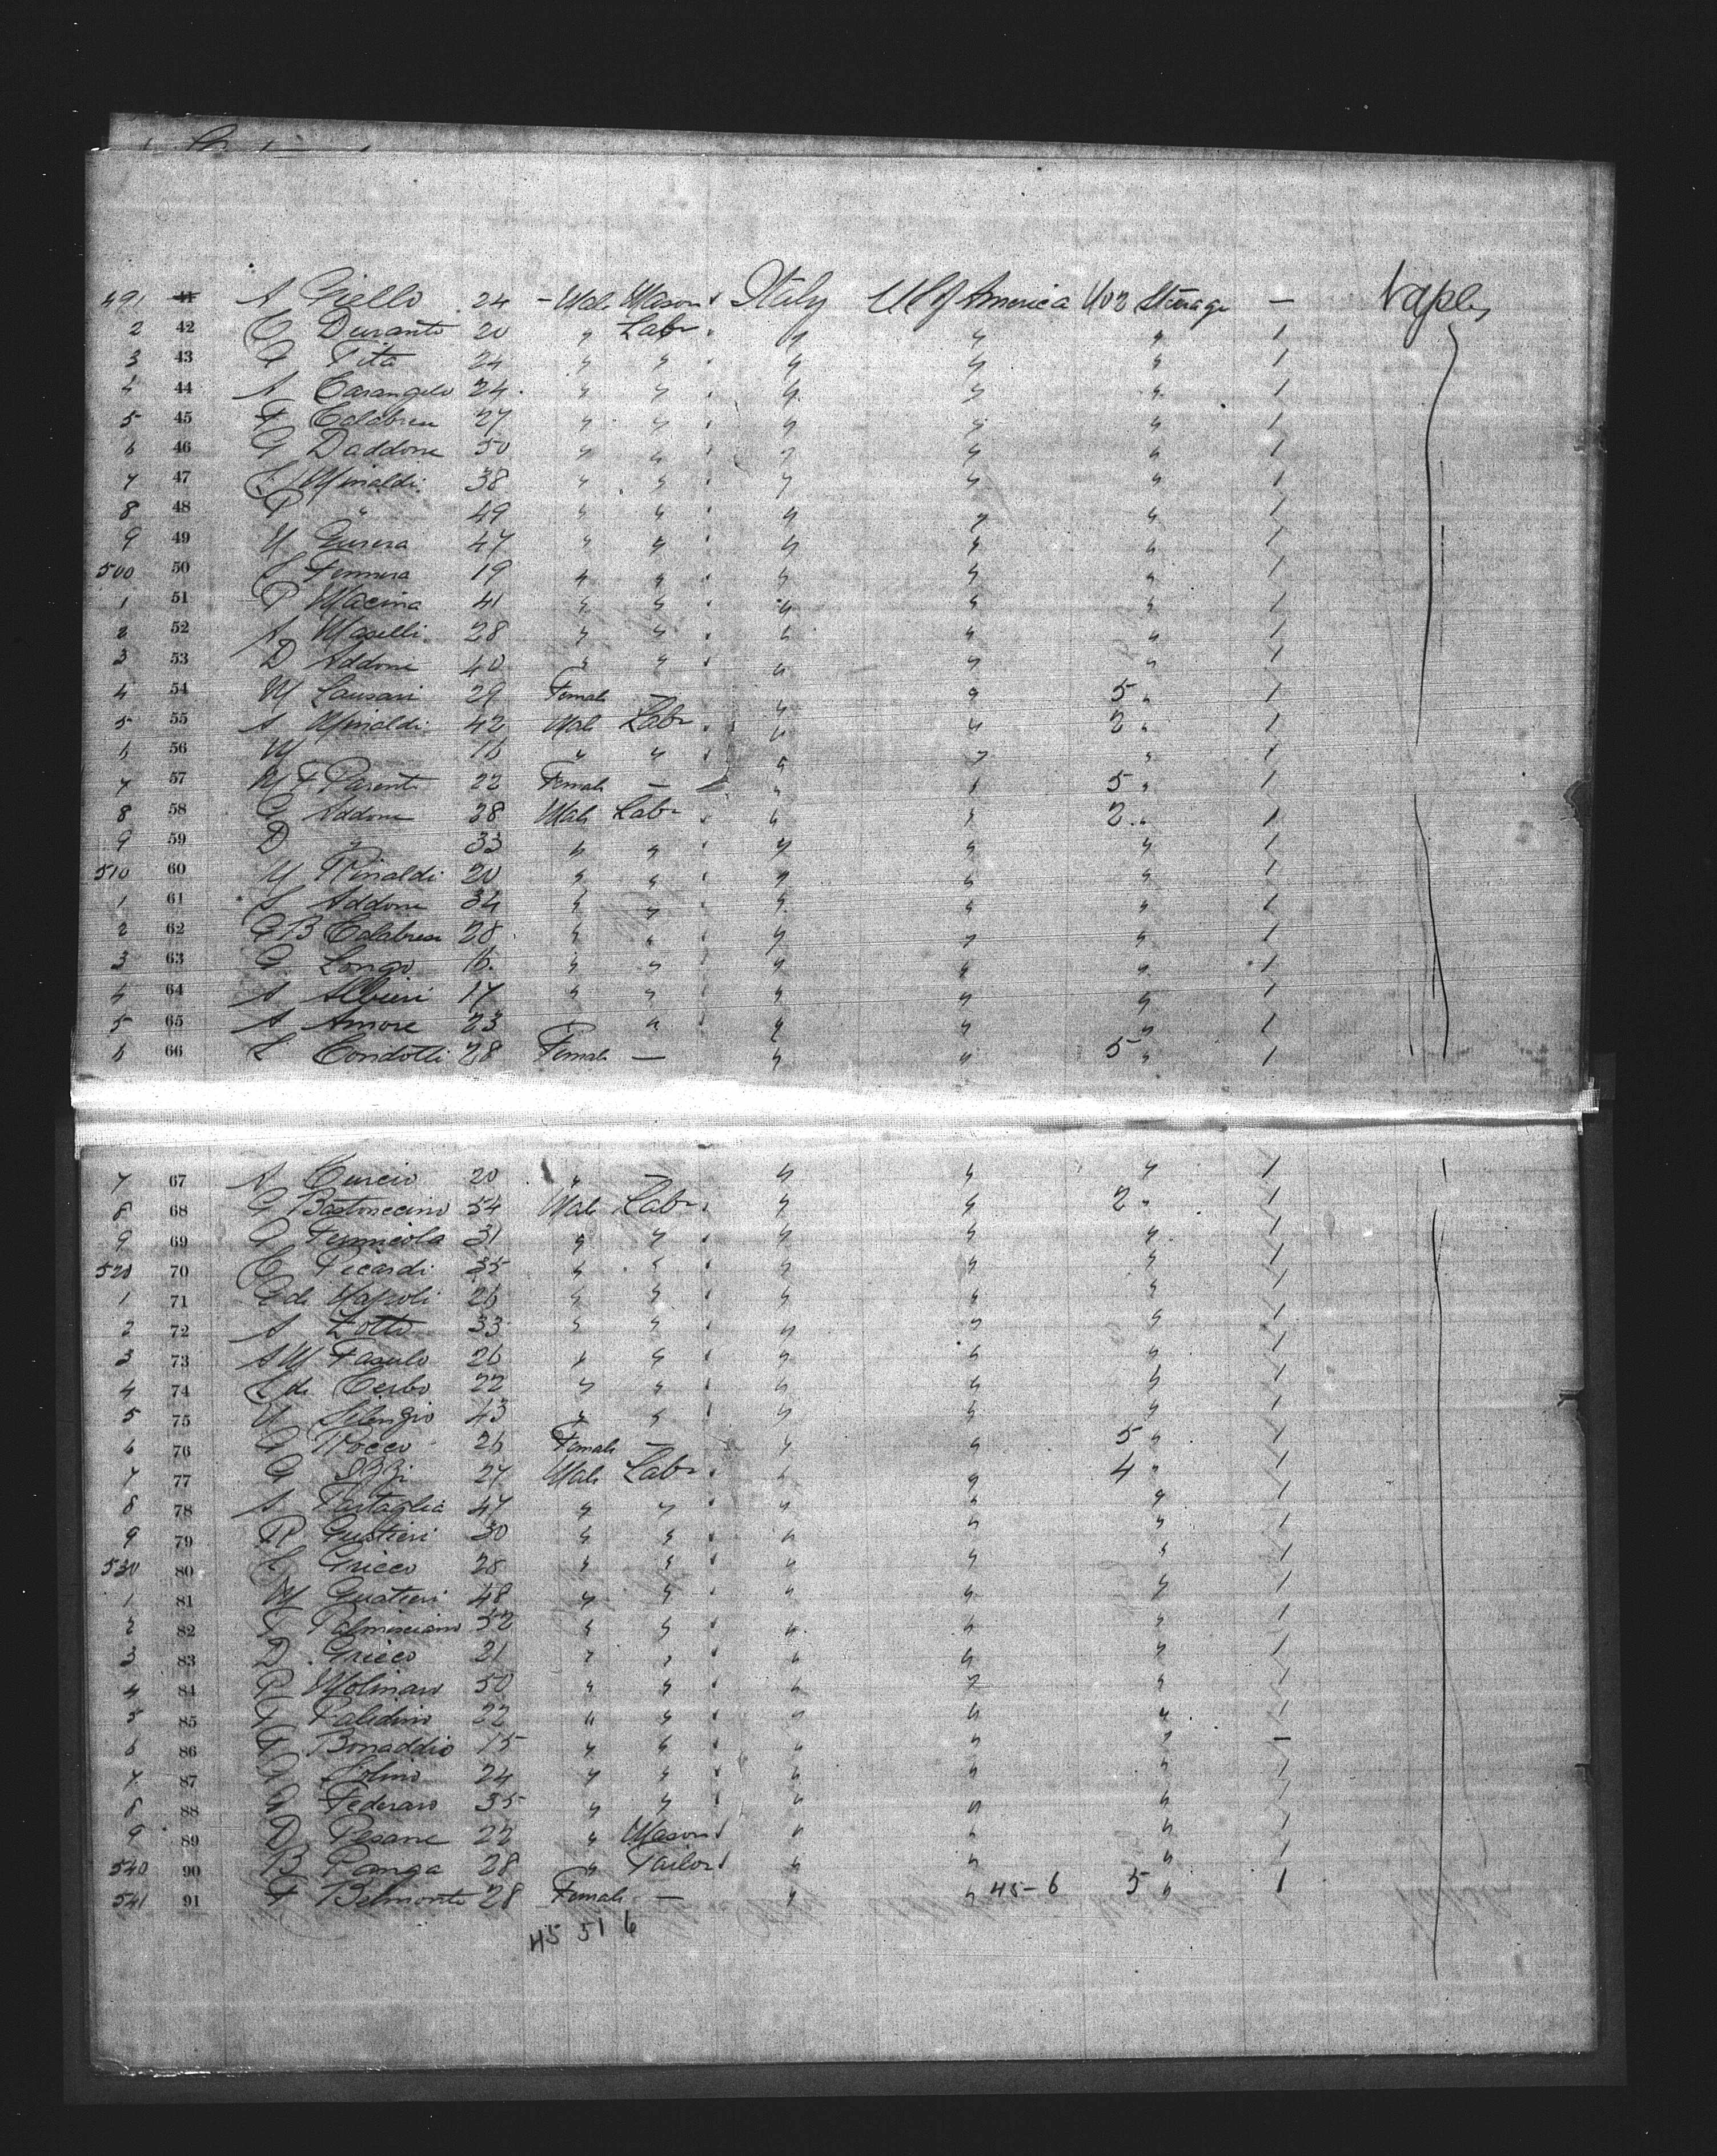 491 41 A Giello 24 - Male Mason Italy U S of America No 2 Steerage - Naples
2 42 C Durante 20 " Labr " " " 1
3 43 G Tita 24 " " " " " 1
4 44 A Carangelo 24 " " " " " 1
5 45 F Calabrese 27 " " " " " 1
6 46 G Daddone 50 " " " " " 1
7 47 Minaldi 38 " " " " " 1
8 48 P " 49 " " " " " 1
9 49 M 47 " " " " " 1
500 50 19 " " " " " 1
1 51 P Macina 41 " " " " " 1
2 52 A Maselli 28 " " " " " 1
3 53 D Addone 40 " " " " " 1
4 54 M 29 Female — " " 5 " 1
5 55 A Minaldi 42 Male Labr " " 2 " 1
6 56 M 16 " " " " " 1
7 57 M F Parente 22 Female — " " 5 " 1
8 58 G Addone 38 Male Labr " " 2 " 1
9 59 D " 33 " " " " " 1
510 60 M Rinaldi 20 " " " " " 1
1 61 S Addone 34 " " " " " 1
2 62 G B Calabrese 28 " " " " " 1
3 63 G Longo 16 " " " " " 1
4 64 A Albieri 17 " " " " " 1
5 65 A Amore 23 " " " " " 1
6 66 L Condotti 28 Female — " " 5 " 1
7 67 A Curcio 20 " — " " " 1
8 68 G Bastoncino 54 Male Labr " " 2 " 1
9 69 G Fennicola 31 " " " " " 1
520 70 C Picardi 35 " " " " " 1
1 71 G di Napoli 26 " " " " " 1
2 72 A Zotto 33 " " " " " 1
3 73 A M Fasulo 26 " " " " " 1
4 74 L di Cerbo 22 " " " " " 1
5 75 M Silengio 43 " " " " " 1
6 76 G Rocco 26 Female — " " 5 " 1
7 77 G 27 Male Labr " " 4 " 1
8 78 A 47 " " " " " 1
9 79 R Gustieri 30 " " " " " 1
530 80 Grieco 28 " " " " " 1
1 81 M Guatieri 48 " " " " " 1
2 82 F Palmisciano 52 " " " " " 1
3 83 D Grieco 21 " " " " " 1
4 84 P Molinaro 50 " " " " " 1
5 85 F Paladino 22 " " " " " 1
6 86 F Bonaddio 15 " " " " " —
7 87 G 24 " " " " " 1
8 88 G Federaro 35 " " " " " 1
9 89 D Pesane 22 " Mason " " " 1
540 90 B Panga 28 " Tailor " " " 1
541 91 F Belmonte 28 Female — " " 45-6 5 " 1
45 51 6